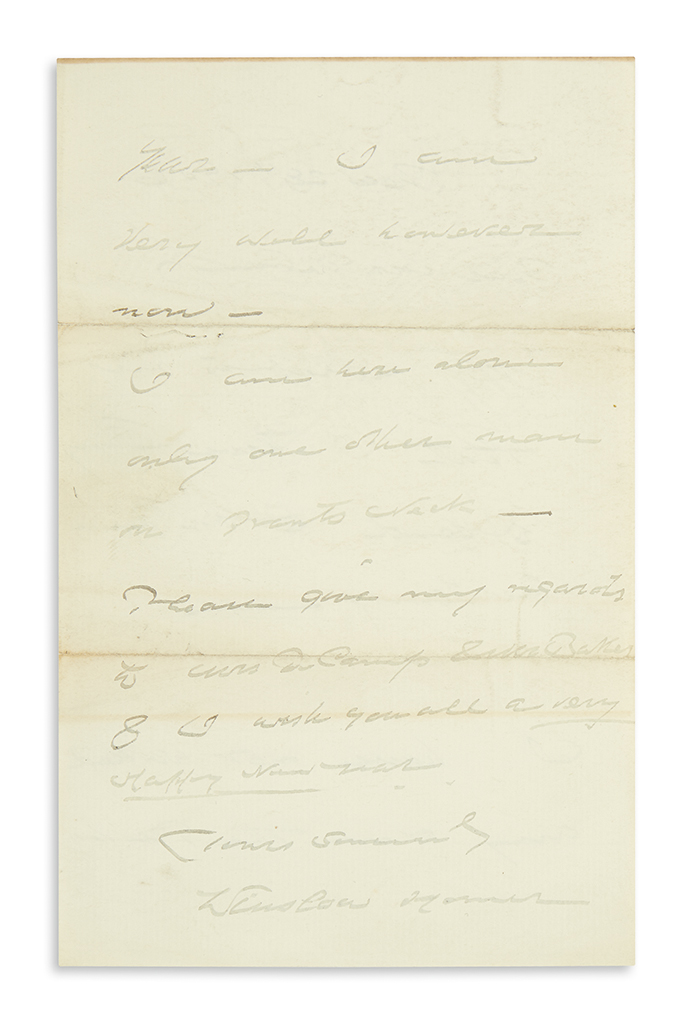 Years — I am
very well however
now —
I am here alone
only one other man
on Prouts Neck —
Please give my regards
to Mrs De Camp & Mrs Baker
& I wish you all a very
Happy New Year
Yours Sincerely
Winslow Homer